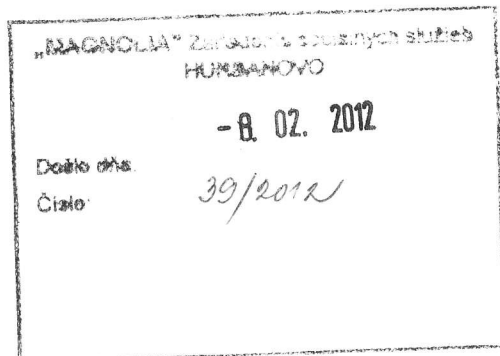 „MAGNOLIA" Zariadenie sociálnych služieb
HURBANOVO
02. 2012
Došlo dňa:
Číslo: 39/2012